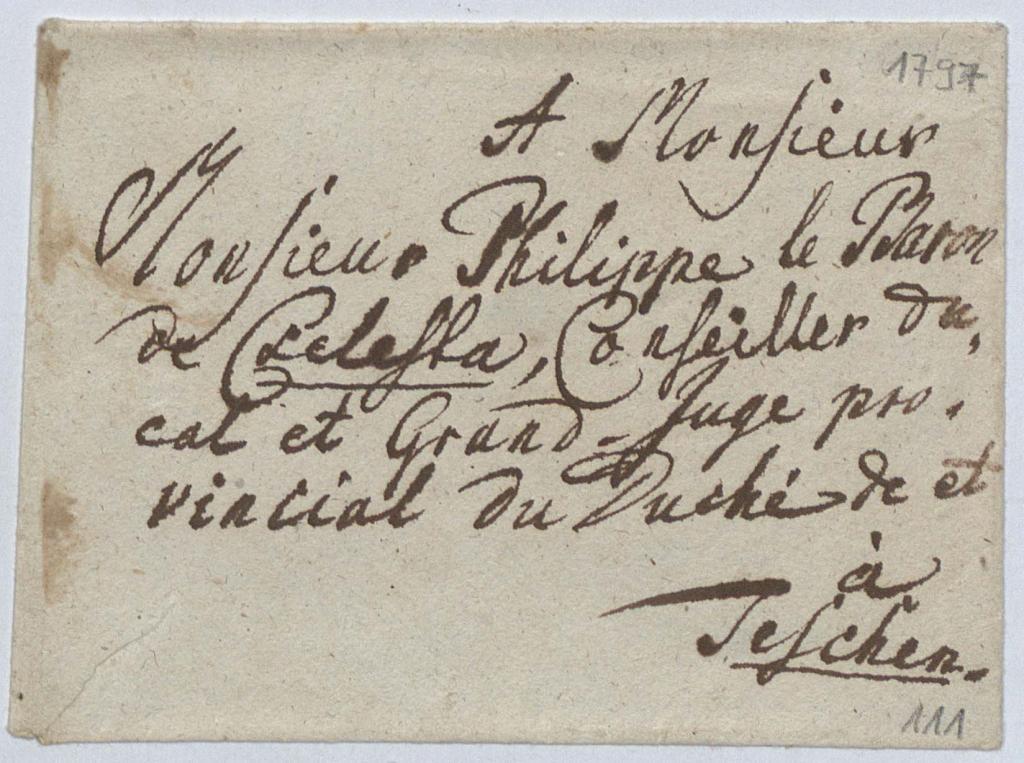 1797
A Monsieur
Monsieur Philippe le Baron
de Celesta, Conseiller du,
cal et Grand-Juge pro,
vincial du Duché de et
à
Teschen.
111